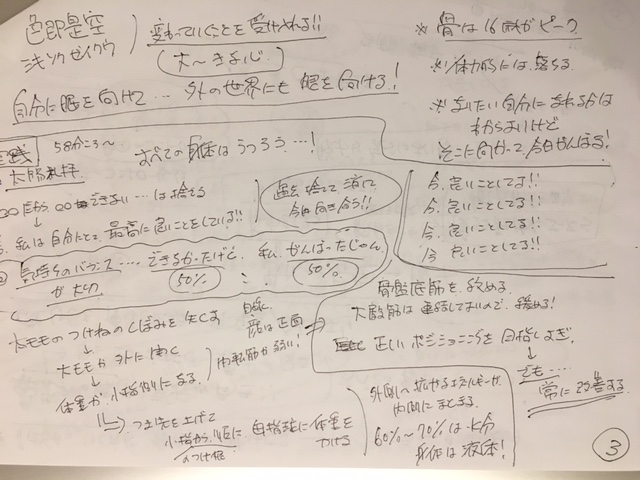 色即是空
変わっていくことを受け入れる!!
自分に眼を向けて… 外の世界にも眼を向ける!
※ 骨は16歳がピーク
※ 体力的には、落ちる
※ なりたい自分になれるかは
わからないけど
そこに向かって今日がんばる!
58分ころ〜
太陽礼拝
すべての身体はうつろう…!
できない…は捨てる
私は自分にとって最高に良いことをしている!!
過去 捨てて 消して
今日向き合う!!
今、良いことしてる!!
今、良いことしてる!!
今、良いことしてる!!
今 良いことしてる!!
気持ちのバランス…
が大切
できなかったけど、
50%
私、がんばったじゃん
50%
骨盤底筋を
正しいポジショニングを目指しすぎ
でも…
常に改善する
大モモのつけねのくぼみを失くす
大モモが外に開く
体重が小指側になる
内転筋が弱い!
顔は正面
つま先を上げて
小指から順に
のつけ根
母指球に体重を
かける
内側にまとまる
60%〜70%は水分
身体は液体!
3